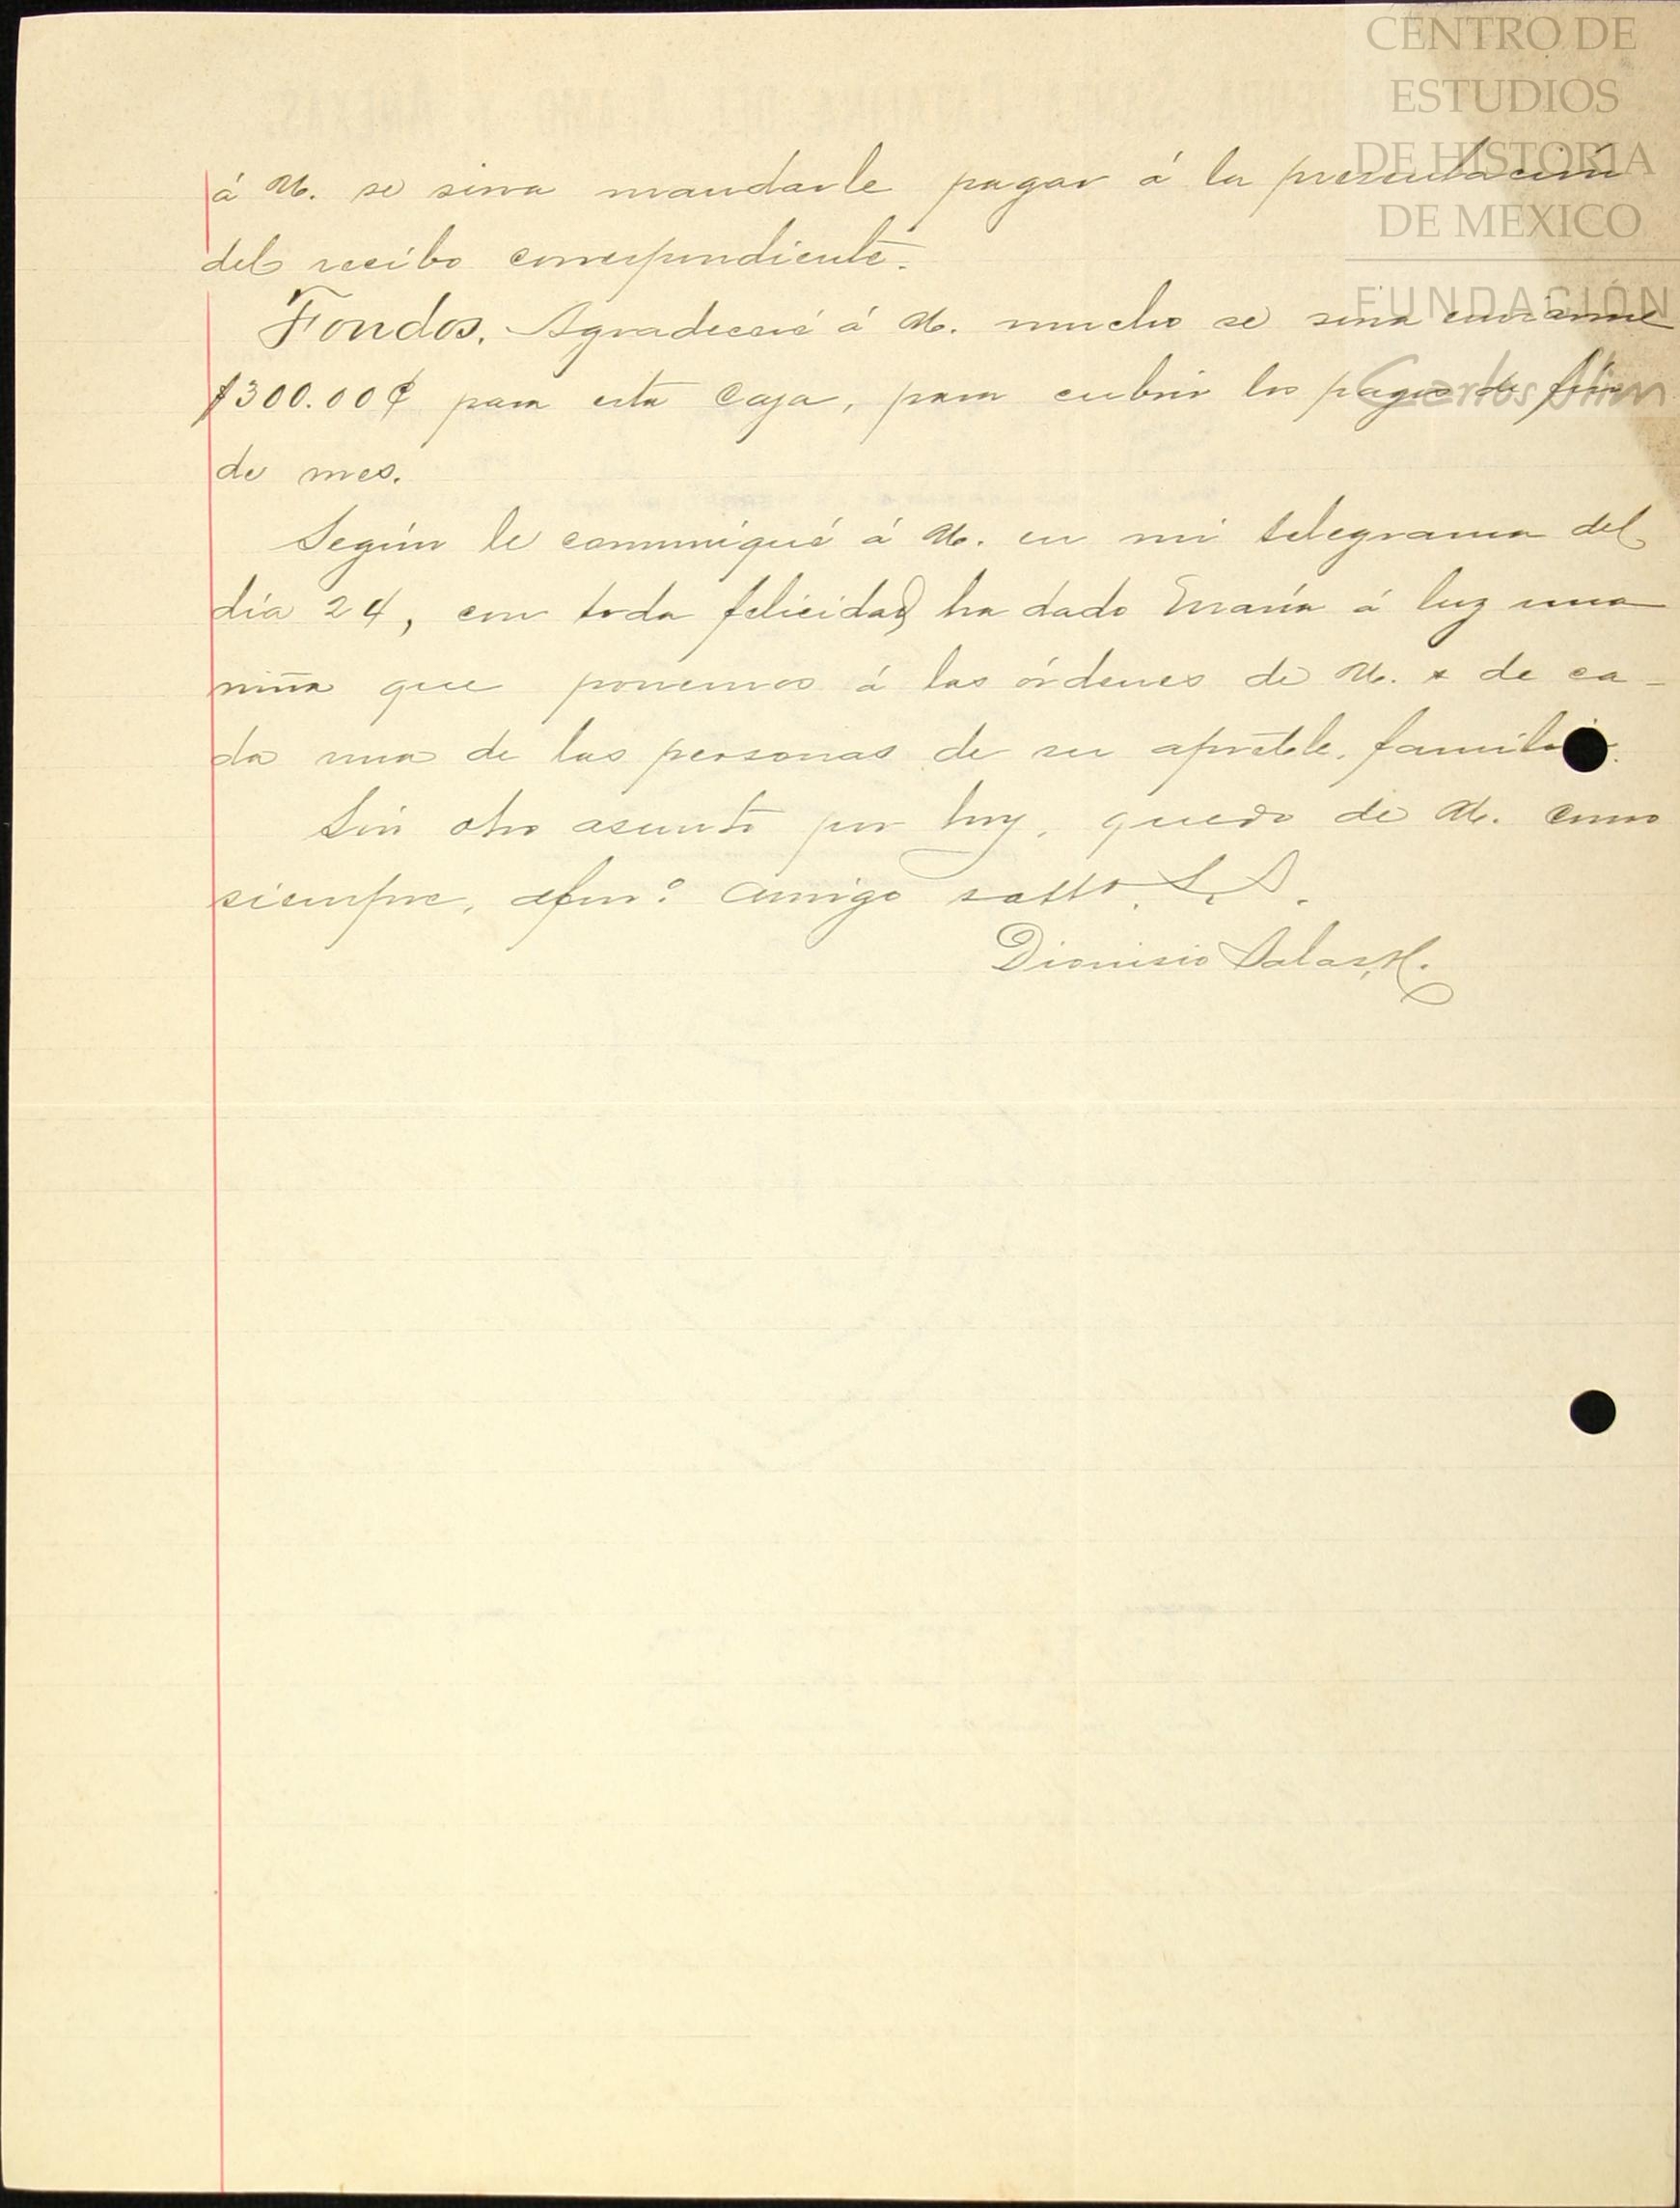 CENTRO DE
ESTUDIOS
DE HISTORIA
DE MEXICO
FUNDACIÓN
Carlos Slim
á U. se sirva mandarle pagar á la presentación
del recibo correspondiente.
Fondos. Agradeceré á U. mucho se sirva enviarme
$300.00¢ para esta Caja, para cubrir los pagos de fin
de mes.
Según le comuniqué á U. en mi telegrama del
día 24, con toda felicidad ha dado María á luz una
niña que ponemos á las órdenes de U. & de ca-
da una de las personas de su apretble. familia.
Sin otro asunto por hoy, quedo de U. como
siempre, afmo. amigo y atto. S. S.
Dionisio Salas,